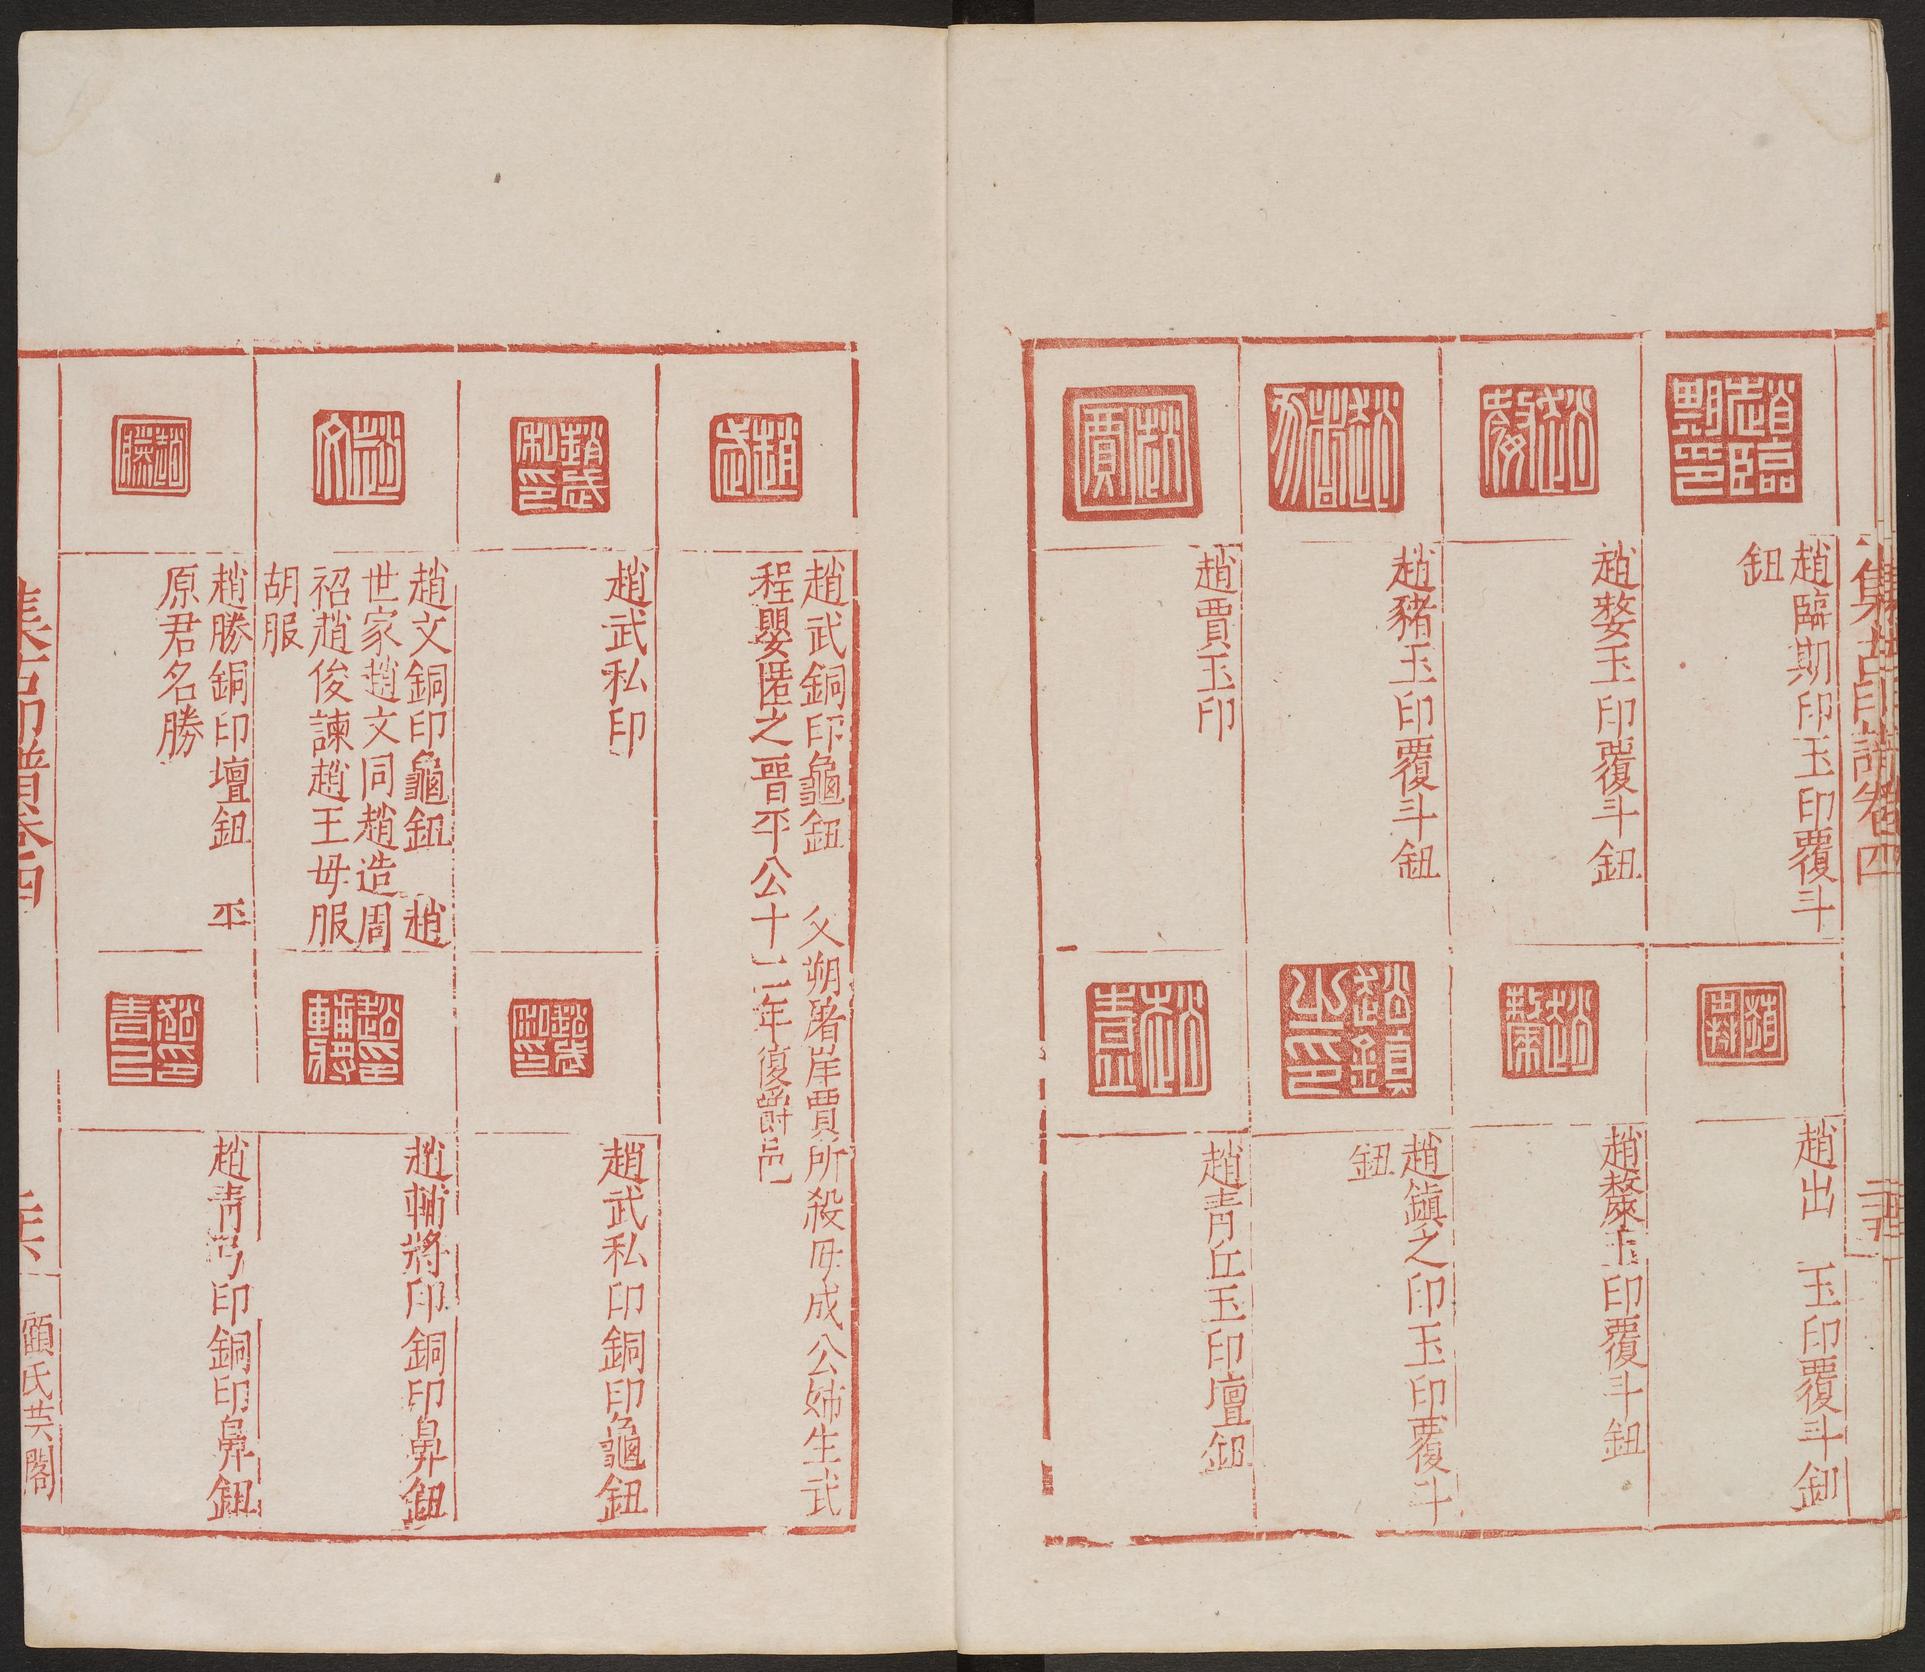 集古印譜卷四
趙臨期印玉印覆斗
鈕
趙嫠玉印覆斗鈕
趙豬玉印覆斗鈕
趙賈玉印
趙出 玉印覆斗鈕
趙漦玉印覆斗鈕
趙鎮之印玉印覆斗
鈕
趙青丘玉印壇鈕
趙武銅印龜鈕 父朔屠岸賈所殺母成公姊生武
程嬰匿之晋平公十二年復爵邑
趙武私印
趙文銅印龜鈕 趙
世家趙文同趙造周
祒趙俊諫趙王毋服
胡服
趙勝銅印壇鈕 平
原君名勝
趙武私印銅印龜鈕
趙輔將印銅印鼻鈕
趙青弓印銅印鼻鈕
集古印譜卷四
顧氏芸閣